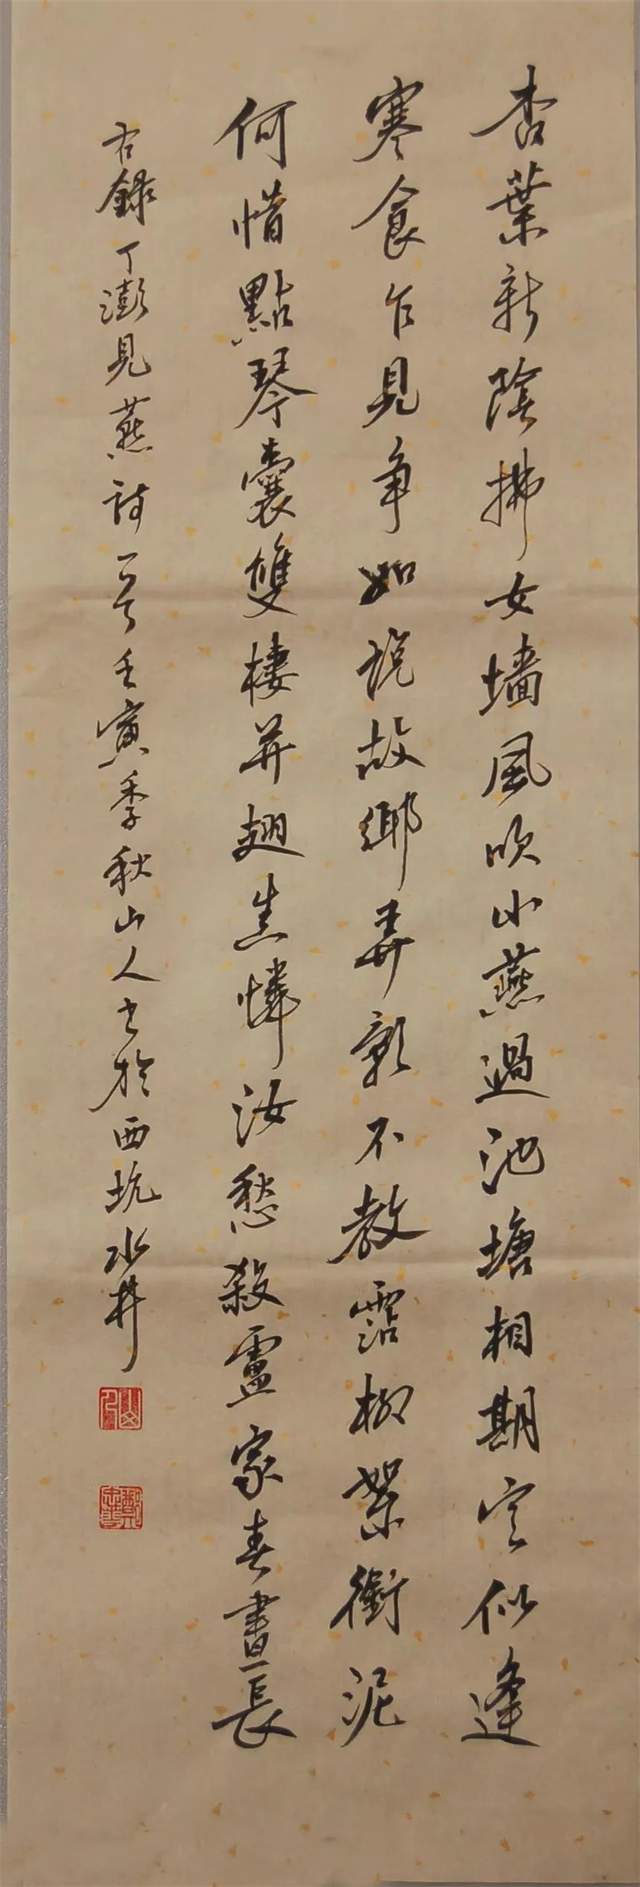 杏葉新陰拂女墻風吹小燕過池塘相期定似逢
寒食乍見争如說故鄉弄影不教霑柳絮銜泥
何惜點琴囊雙棲并翅真憐汝愁殺盧家春晝長
右錄丁澎見燕詩一首壬寅季秋山人書於西坑水井
山人